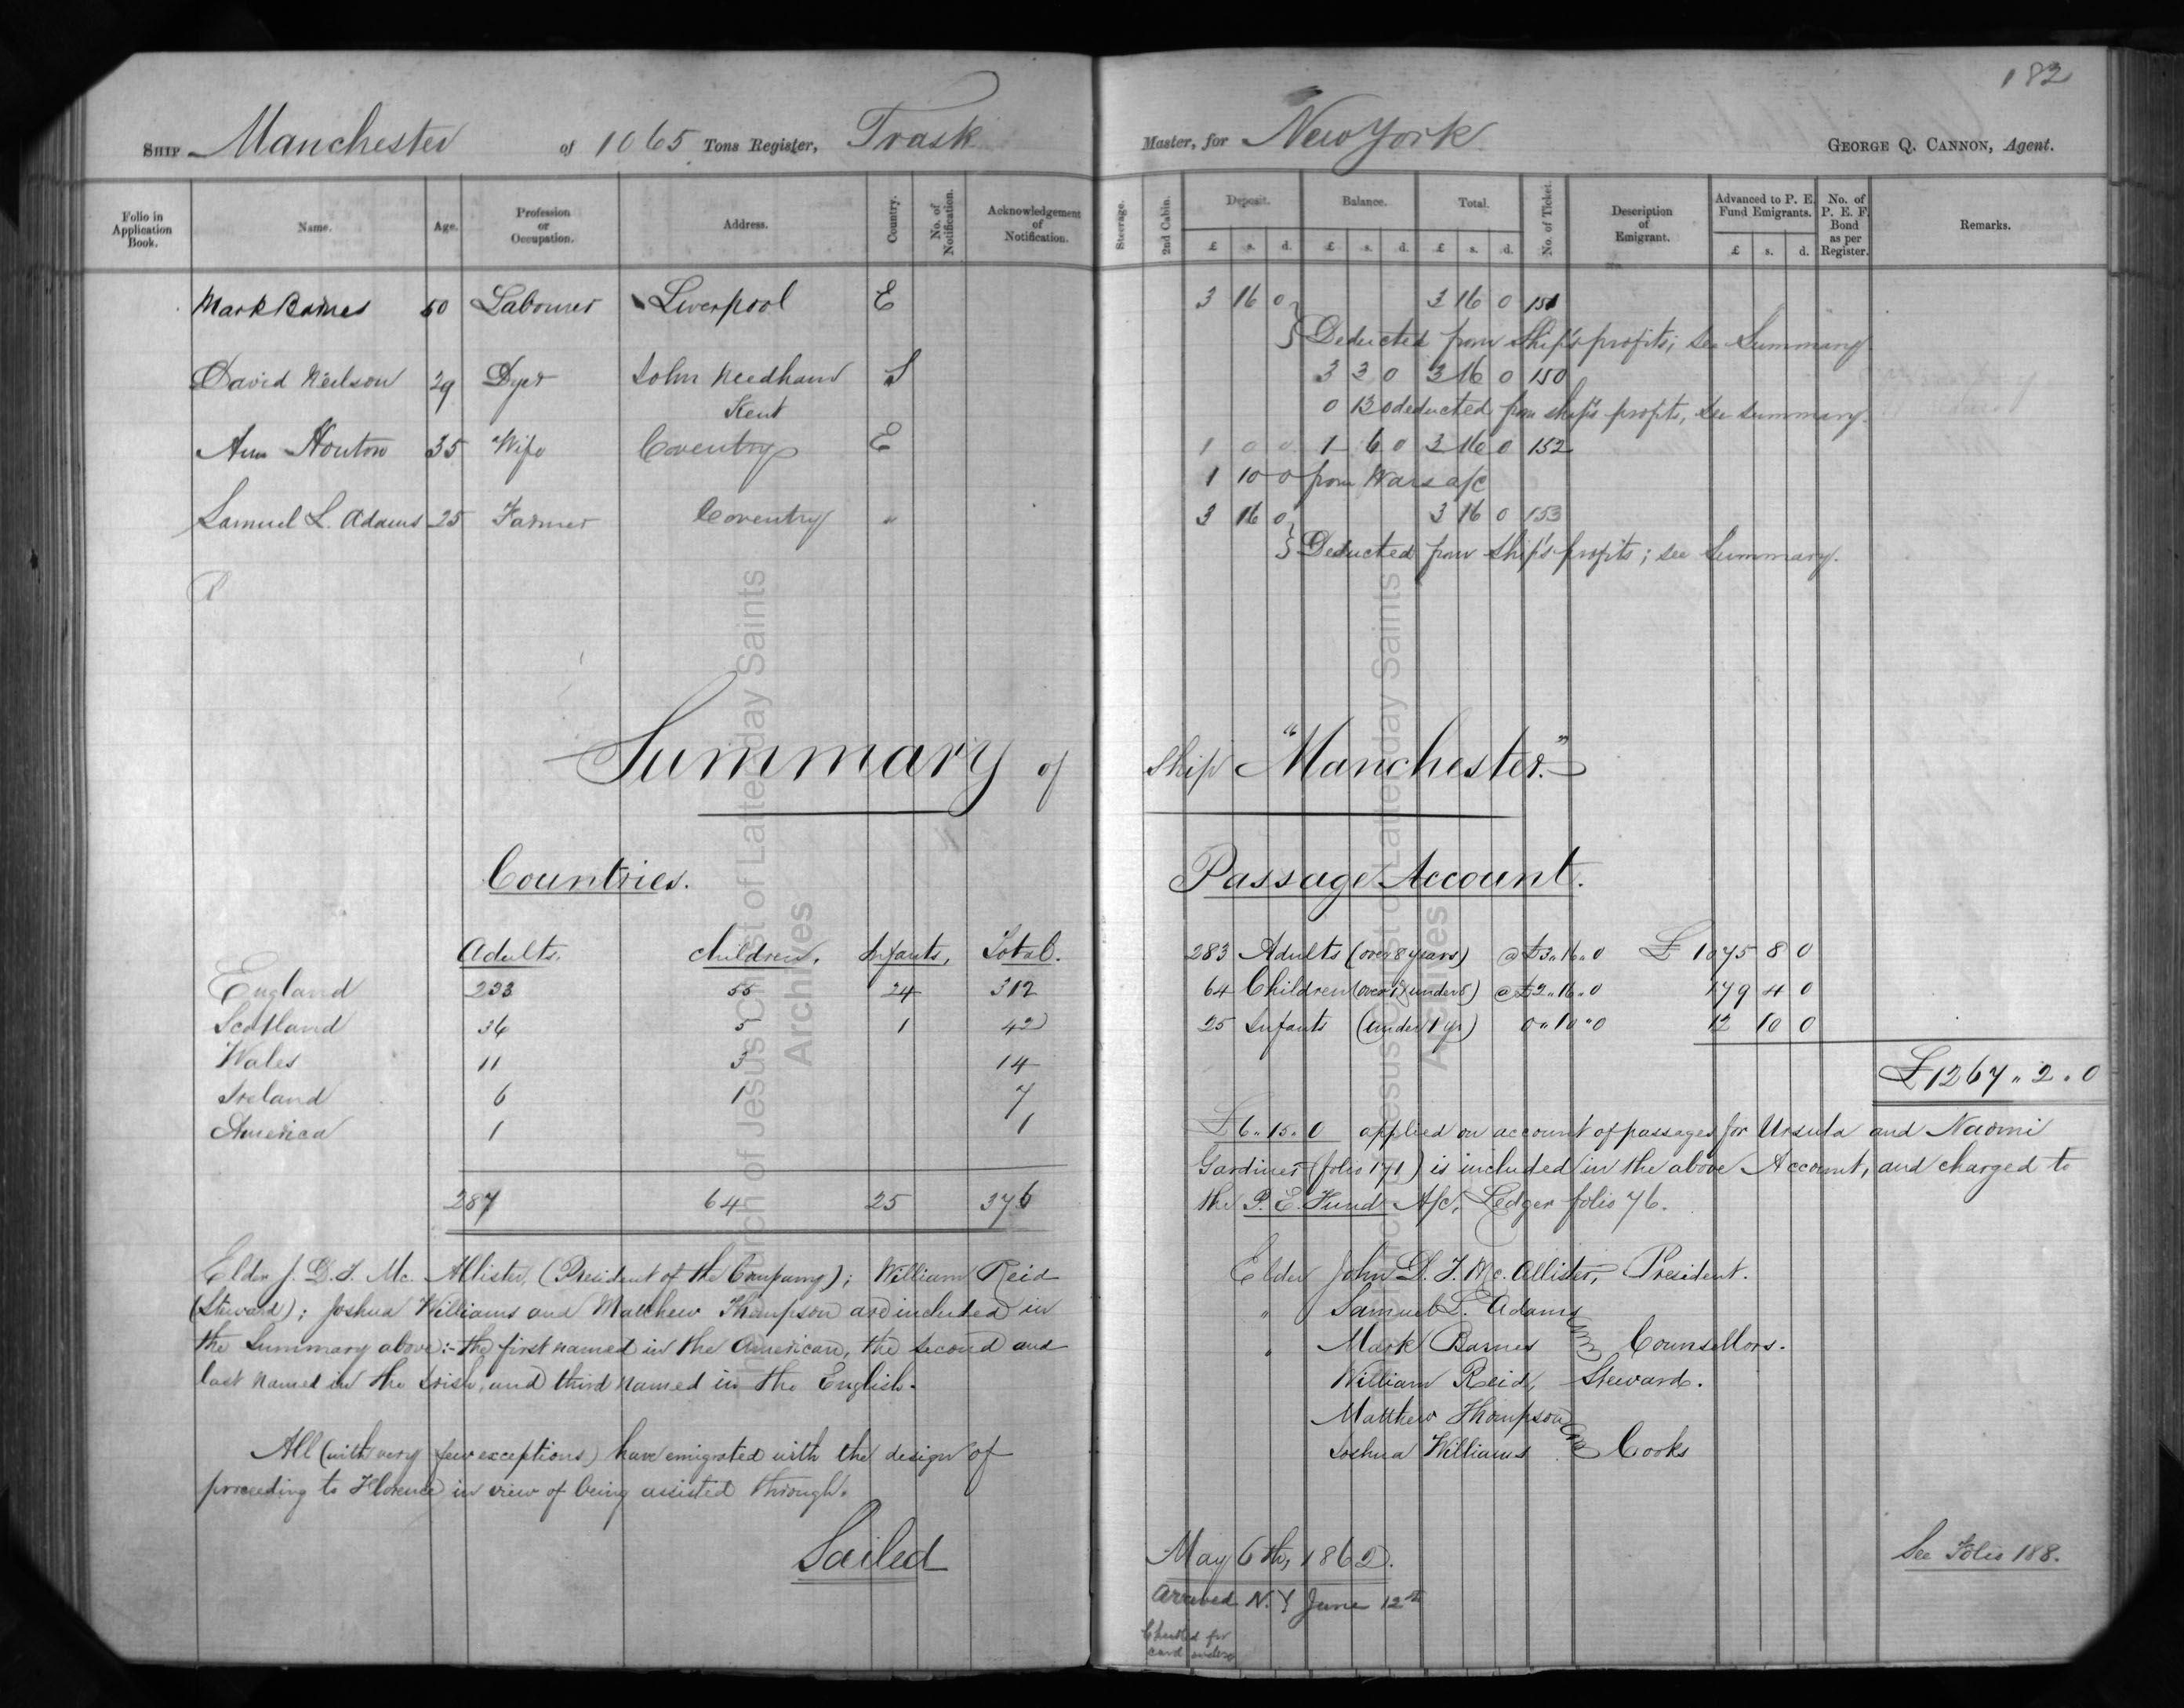 182
SHIP Manchester of 1065 Tons Register, Trask Master, for New York GEORGE Q. CANNON, Agent.
Folio in Application Book. Name. Age. Profession or Occupation. Address. Country. No. of Notification. Acknowledgement of Notification. Steerage. 2nd Cabin. Deposit. Balance. Total. No. of Ticket. Description of Emigrant. Advanced to P. E. Fund Emigrants. No. of P. E. F. Bond as per Register. Remarks.
£ s. d. £ s. d. £ s. d. £ s. d.
Mark Barnes 50 Labourer Liverpool E 3 16 0 3 16 0 151
Deducted from Ship's profits; see Summary
David Neilson 29 Dyer John Needham S 3 3 0 3 16 0 150
Kent 0 13 0 deducted from ship's profits, see summary.
Ann Houton 35 Wife Coventry E 1 0 0 1 6 0 3 16 0 152
1 10 0 from Wars a/c
Samuel L. Adams 25 Farmer Coventry " 3 16 0 3 16 0 153
Deducted from ship's profits; see Summary.
Summary of Ship "Manchester."
Countries. Passage Account.
Adults. Children. Infants. Total.
England 233 55 24 312
Scotland 36 5 1 42
Wales 11 3 14
Ireland 6 1 7
America 1 1
287 64 25 376
283 Adults (over 8 years) @ £3 " 16 " 0 £ 1075 8 0
64 Children (over 1 & under 8) @ £2 " 16 " 0 179 4 0
25 Infants (under 1 yr) 0 " 10 " 0 12 10 0
£1267 " 2 " 0
£6 " 15 " 0 applied on account of passages for Ursula and Naomi
Gardiner (folio 171) is included in the above Account, and charged to
the P. E. Fund A/c, Ledger folio 76.
Elder J. D. T. Mc. Allister, (President of the Company); William Reid
(Steward); Joshua Williams and Matthew Thompson are included in
the Summary above:- the first named in the American, the second and
last named in the Irish, and third named in the English.
All (with very few exceptions) have emigrated with the design of
proceeding to Florence in view of being assisted through.
Elder John D. T. Mc. Allister, President.
" Samuel L. Adams
" Mark Barnes Counsellors.
William Reid, Steward.
Matthew Thompson
Joshua Williams Cooks
Sailed May 6th, 1862.
See Folio 188.
Arrived N.Y June 12th
Checked for
card index
Church of Jesus Christ of Latter-day Saints
Archives
Church of Jesus Christ of Latter-day Saints
Archives